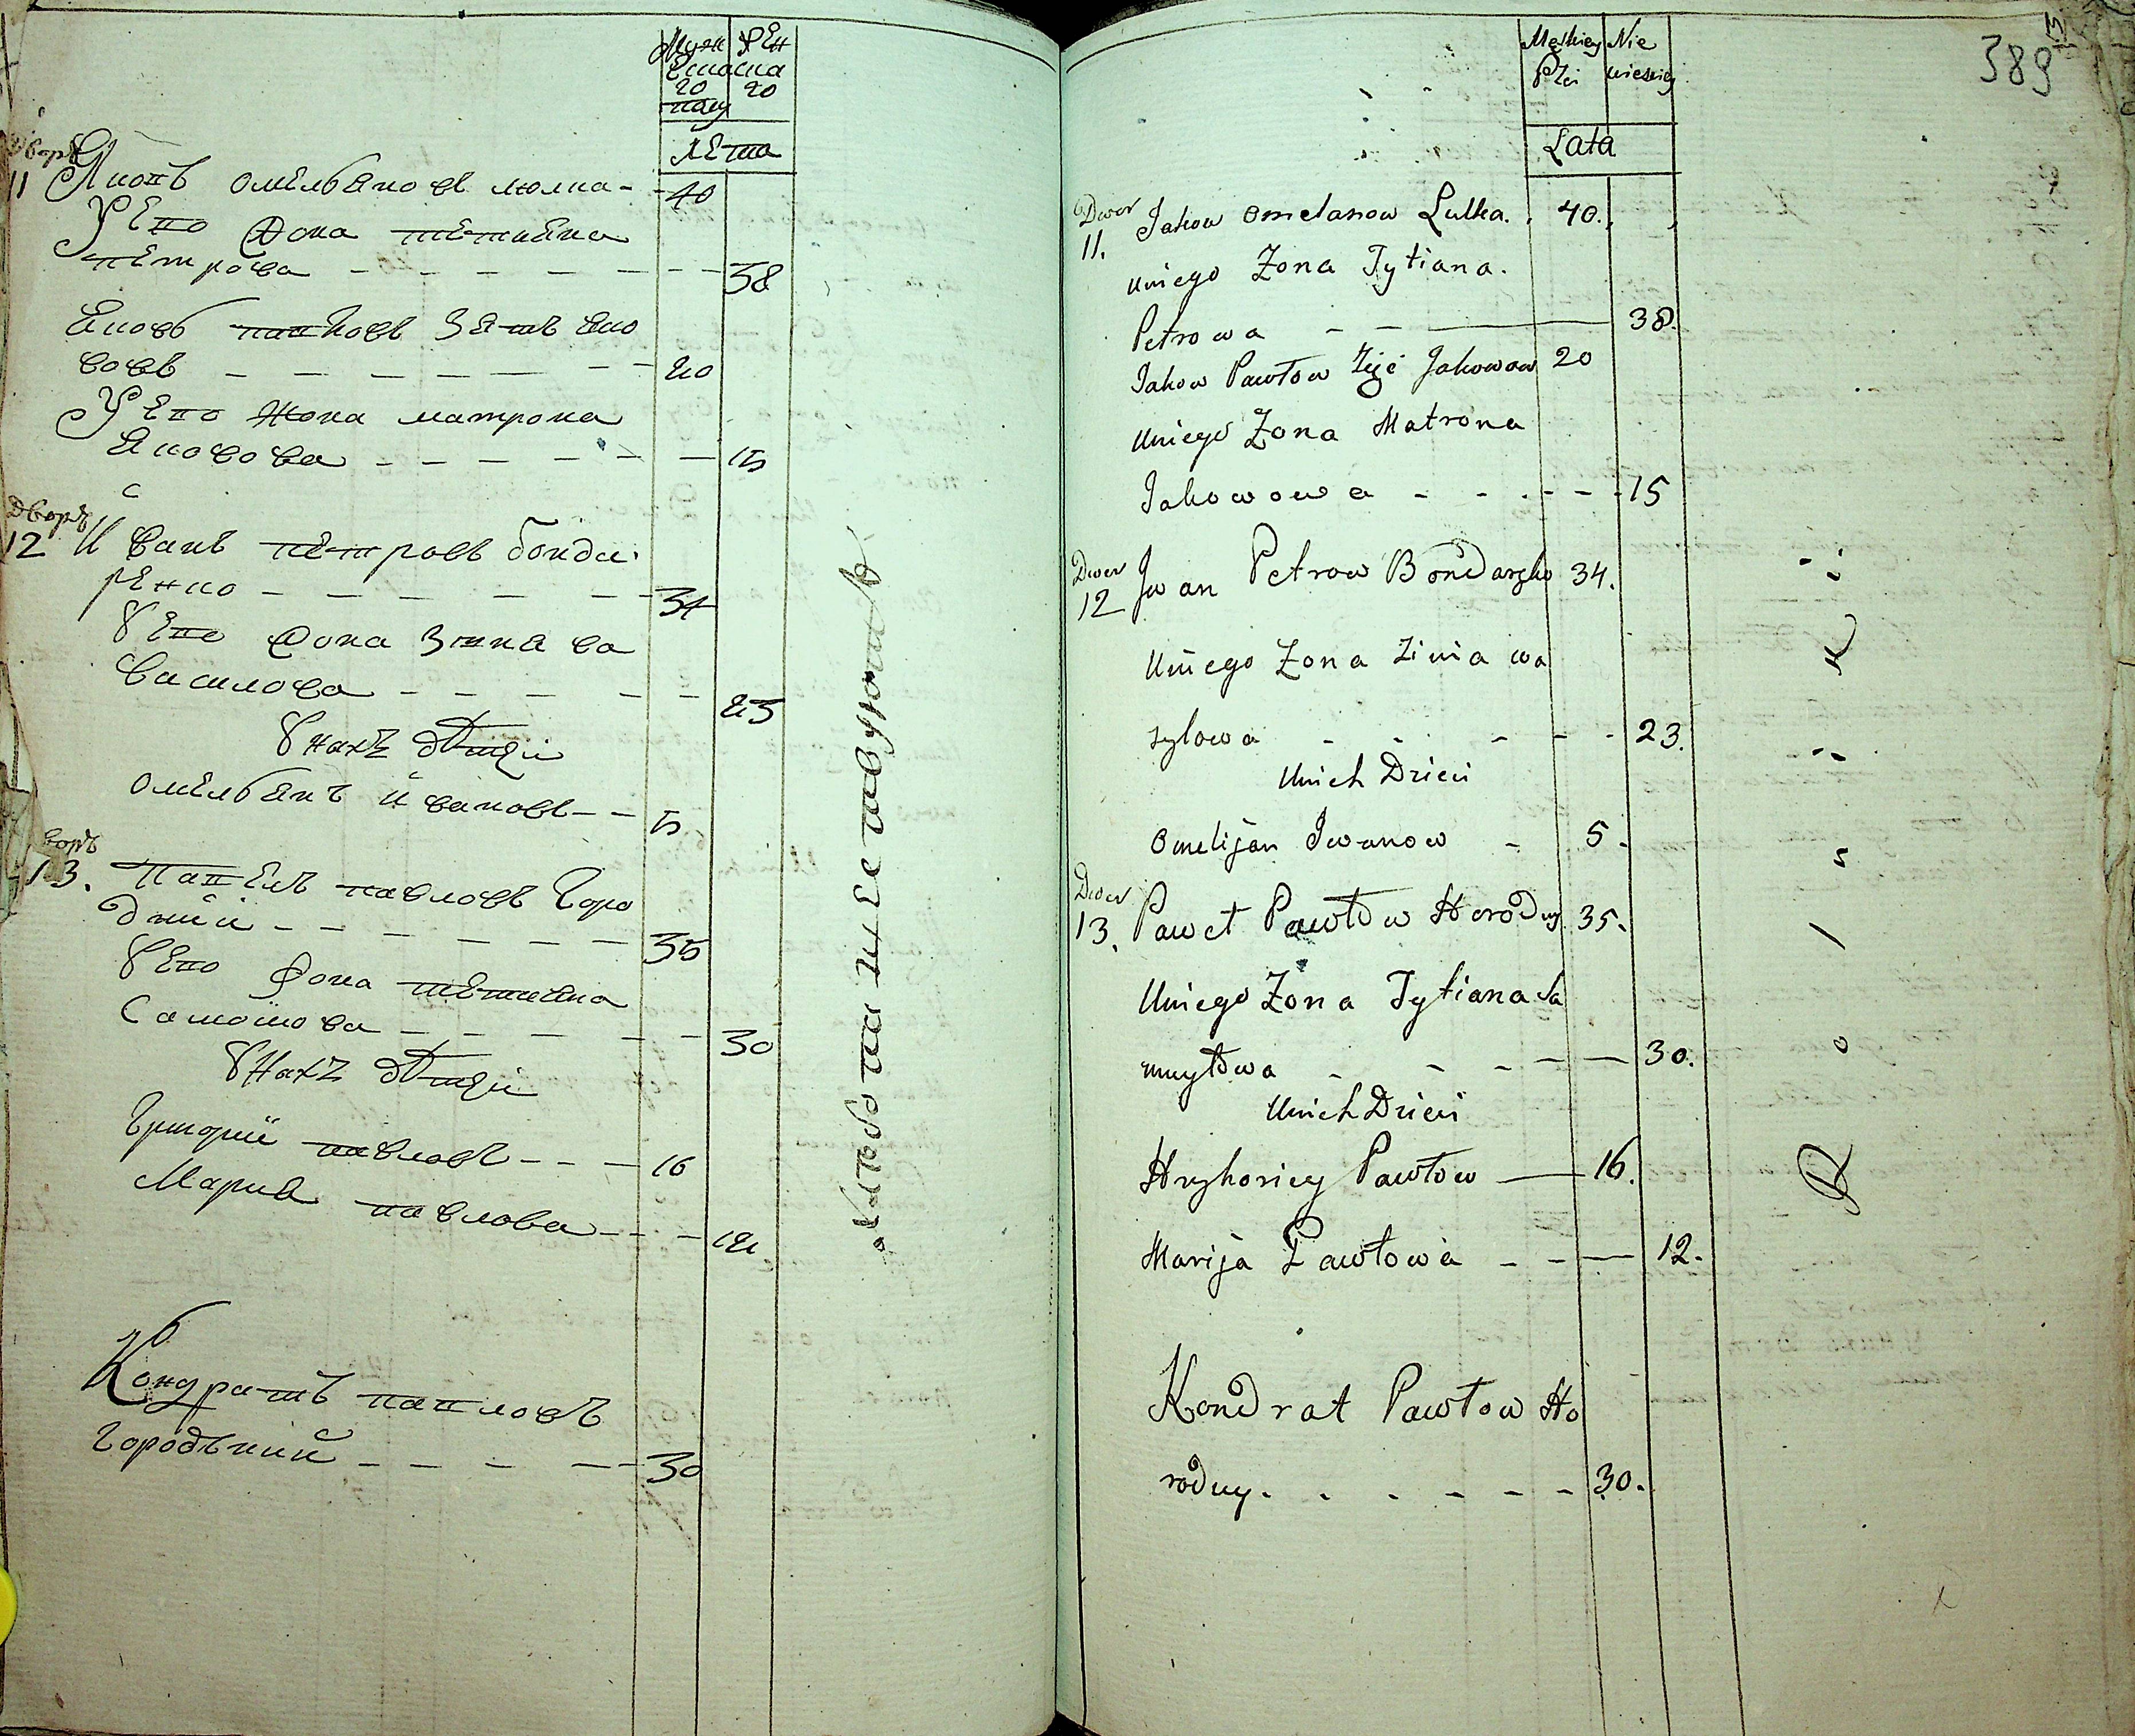 Муж Жен
еска ска
го го
полу
лета
Дворъ
11 Яковъ омельяновъ люлка - 40
У его жона тетияна
петрова - - - - - - - 38
Яковъ павловъ зять яко
вовъ - - - - - - - 20
У его жона матрона
Яковова - - - - - - 15
Дворъ
12 Иванъ петровъ бонда
ренко - - - - - - 34
У его жона зиня ва
силова - - - - - - 23
У нахъ дѣти
омельянъ ивановъ - - 5
воръ
13. Павелъ павловъ Горо
дний - - - - - - - 35
У его жона тетияна
Самойлова - - - - - - 30
У нахъ дѣти
Григорий павловъ - - - 16
Мария павлова - - - - 12.
Кондратъ павловъ
городний - - - - - 30
389
Męskiey Nie
Płci wieskiey
Lata
Dwor
11. Jakow omelanow Lulka. 40.
Uniego Zona Tytiana.
Petrowa - - 38.
Jakow Pawłow Zięć Jakowow 20
Uniego Zona Matrona
Jakowowa - - - - - 15
Dwor
12 Jwan Petrow Bondarzko 34.
Uniego Zona Zinia wa
sylowa - - - - - 23.
Unich Dzieci
Omelijan Jwanow - 5.
Dwor
13. Paweł Pawłow Horodny 35.
Uniego Zona Tytiana Sa
muyłowa - - - - - 30.
Unich Dzieci
Hryhoriey Pawłow - 16.
Marija Pawłowa - - - 12.
Kondrat Pawłow Ho
rodny. - - - - - - 30.